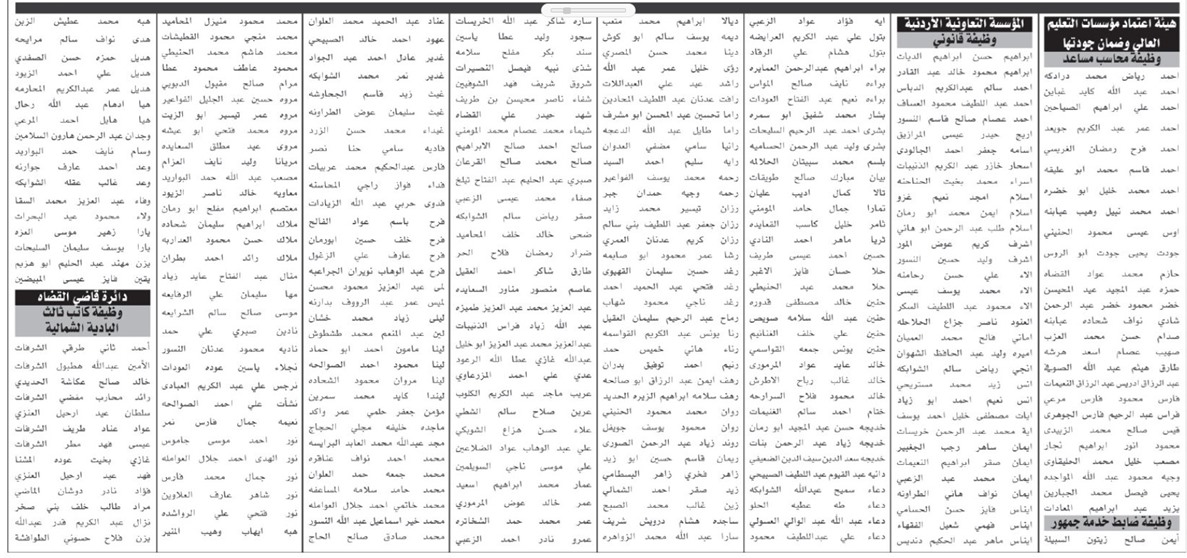 هيئة اعتماد مؤسسات التعليم
العالي وضمان جودتها
وظيفة محاسب مساعد
احمد رياض محمد درادكه
احمد عبد الله كايد غباين
احمد علي ابراهيم الصياحين
احمد عمر عبد الكريم جويعد
احمد فرح رمضان الغريسي
احمد قاسم محمد ابو عليقه
احمد محمد خليل ابو خضره
احمد محمد نبيل وهيب عبابنه
اوس عيسى محمود الحنيني
جودت يحيى جودت ابو الروس
حازم محمد عواد القضاه
حمزه عبد المجيد عبد المحيسن
خضر محمود خضر عبد الرحمن
شادي نواف شحاده عبابنه
صدام حسن محمد العزب
صهيب عصام اسعد هرشه
طارق هيثم عبد الله الصويفي
عبد الرزاق ادريس عبد الرزاق النعيمات
فارس محمود فارس مرعي
فراس عبد الرحيم فارس الجوهري
قيس صالح محمد الزبيدي
محمود انور ابراهيم نجار
مصعب خليل محمد الحنيقاوي
وجيه محمود عبد الله المواجده
يحيى فيصل محمد الجبارين
يزيد عيد ابراهيم العدادات
وظيفة ضابط خدمة جمهور
أيمن صالح زيتون السبيلة
المؤسسة التعاونية الأردنية
وظيفة قانوني
ابراهيم حسن ابراهيم الديات
ابراهيم محمود خالد عبد القادر
احمد سالم عبدالكريم الدباس
احمد عبد اللطيف محمود العساف
احمد عصام صالح قاسم النسور
اريج حيدر عيسى المرازيق
اسامه جعفر احمد الجالودي
اسحار خازر عبد الكريم الذنيبات
اسراء محمد بخيت الحناحنه
اسلام امجد نعيم غزو
اسلام ايمن محمد ابو رمان
اسلام طلب عبد الرحمن ابو هاني
اشرف كريم عوض المور
اشرف وليد حسين النسور
الاء علي حسن رحامنه
الاء محمد يوسف عيسى
الاء محمود عبد اللطيف السكر
العنود ناصر جزاع الحلاحله
اماني فالح محمد العميان
اميره وليد عبد الحافظ الشهوان
انجي رياض سالم الشوابكه
انس زيد محمد مستريحي
انس نعيم احمد ابو زياد
ايات مصطفى خليل احمد يوسف
اية محمد عبد الرحمن خريسات
ايمان ساهر رجب الجغبير
ايمان صقر ابراهيم النعيمات
ايمان محمد عبد الزعبي
ايمان نواف هاني الطراونه
ايناس فايز حسن الحسامي
ايناس فهمي شعيل الفقهاء
ايناس ماهر عبد الحكيم دنديس
ايه فؤاد عواد الزعبي
بتول علي عبد الكريم العرايضه
بتول هشام علي الرقاد
براء ابراهيم عبدالرحمن العمايره
براءه نايف صالح المواس
براءه نعيم عبد الفتاح العودات
بشار محمد شفيق ابو سمره
بشرى احمد عبد الرحيم السليحات
بشرى وليد عبد الرحمن الحساميه
بلسم محمد سبيتان الحلالمه
بيان مبارك صالح طويقات
تالا كمال اديب عليان
تمارا جمال حامد المومني
ثامر خليل كاسب القعايده
ثريا ماهر احمد النادي
حسين احمد عيسى طريف
حلا حسان فايز الاغبر
حلا محمد عبد الحنيطي
حنين خالد مصطفى قدوره
حنين عبد الله سلامه صويص
حنين علي خلف الغنانيم
حنين يونس جمعه القواسمي
خالد عايد عواد المرموري
خالد غالب رباح الاطرش
خالد محمود فلاح السرارحه
ختام احمد سالم الغنيمات
خديجه حسن عبد المجيد ابو رمان
خديجه زياد عبد الرحمن بنات
خديجه سعد الدين سيف الدين الضعيفي
دانيه عبد القيوم عبد اللطيف الصبيحي
دعاء سميح عبدالله الشوابكه
دعاء طه عطيه الحلو
دعاء عبد الله عبد الوالي العسولي
دعاء علي عبدالله محمود
ديالا ابراهيم محمد متعب
ديمه يوسف سالم ابو كوش
دينا محمد حسن المصري
رؤى خليل عمر عبد الله
راشد عيد علي العبداللات
رافت عدنان عبد اللطيف المحادين
راما تحسين عبد المحسن ابو مشرف
راما طايل عبد الله الدعجه
رانيا سامي مضفي العدوان
رايه سليم احمد السيد
رحمه محمد يوسف الفواعير
رحمه وجيه حمدان جبر
رزان تيسير محمد زايد
رزان جعفر عبد اللطيف بني سالم
رزان كريم عدنان العمري
رشا عمر محمود ابو صايمه
رغد حسين سليمان القهيوي
رغد فتحي عبد الحميد احمد
رغد ناجي محمود شهاب
رماح عبد الرحيم سليمان العقيل
رنا يونس عبد الكريم القواسمه
رناء هاني خميس حمد
رنيم احمد توفيق بدران
رهف ايمن عبد الرزاق ابو صالحه
رهف سلامه ابراهيم الزيره الحديد
روان محمد محمود الحنيني
روان محمود يوسف جويفل
روند زياد عبد الرحمن الصوري
ريمان قاسم حسين ابو زيد
زاهر فخري زاهر البسطامي
زيد صقر احمد الشمالي
زين غالب محمد الصبح
ساجده هشام درويش شريف
سارا عبد الله محمد الزواهره
ساره شاكر عبد الله الخريسات
سجود وليد عطا ياسين
سند بكر مفلح سلامه
شذى نبيه فيصل النصيرات
شروق شريف فهد الشوفيين
شفاء ناصر محيسن بن طريف
شهد حيدر علي القضاه
شيماء محمد عصام محمد المومني
صالح احمد صالح الابراهيم
صالح محمد صالح القرعان
صبري عبد الحليم عبد الفتاح تيلخ
صفاء محمد عيسى الزعبي
صقر رياض سالم الشوابكه
ضحى خالد خلف المحاميد
ضرار رمضان فلاح الحر
طارق شاكر احمد العقيل
عاصم منصور مناور السعايده
عبد العزيز محمد عبد العزيز طميزه
عبد الله زياد فراس الذنيبات
عبدالعزيز محمد عبد العزيز ابو خليل
عبدالله غازي عطا الله الرعود
عدي علي احمد المزرعاوي
عريب ماجد عبد الكريم الكلوب
عرين صلاح سالم الشطي
علاء حسن هزاع الشويكي
علي عبد الوهاب عواد الضلاعين
علي موسى ناجي السويلمين
عمار محمد ابراهيم اسعيد
عمر خالد عوض المرموري
عمر محمد حمد الشخاتره
عمرو نادر احمد الزعبي
عناد عبد الحميد محمد العلوان
عهود احمد خالد الصبيحي
غدير عادل احمد عبد الجواد
غدير نمر محمد الشوابكه
غيث زيد قاسم الجحاوشه
غيث سليمان عوض الطراونه
غيداء محمد حسن الزرد
فاديه سامي حنا نصر
فارس عبدالحكيم محمد عربيات
فداء فواز راجي المحاسنه
فدوى حربي عبد الله الزيادات
فرح باسم عواد الفالح
فرح خلف حسين ابورمان
فرح عارف علي الزغول
فرح عبد الوهاب نويران الجراعيه
ليس عمر عبد الرؤوف بدارنه
ليلى زياد محمد خشان
لين عبد المنعم محمد طشطوش
لينا مامون احمد ابو حماد
لينا محمود احمد الصوالحه
لينا مروان محمود الشحاده
ليندا كايد محمد سمرين
مؤمن جعفر حلمي عمر واكد
ماجده خليفه مجلي الحجاج
مجد عبدالله محمد العابد البرايسه
محمد احمد نواف عناقره
محمد جمعه حمد العلوان
محمد حامد سلامه المساعفه
محمد خاتمي احمد جلال العوامله
محمد خير اسماعيل عبد الله النسور
محمد صادق صالح الحاج
محمد محمود منيزل المحاميد
محمد منجي محمود القطيشات
محمد هاشم محمد الحنيطي
محمود عاطف محمود عطا
مرام صالح مقبول الدبوبي
مروه حسين عبد الجليل الفواعير
مروه عمر تيسير ابو الزيت
مروه محمد فتحي ابو عيشه
مروى عيد مطلق السعايده
مريانا وليد نايف العزام
مصعب عبد الله حمد البواريد
معاويه خالد ناصر الزيود
معتصم ابراهيم مفلح ابو رمان
ملاك ابراهيم سليمان شحاده
ملاك حسن محمود العداربه
ملاك رائد احمد بطران
منال عبد الفتاح عايد زياد
مها سليمان علي الرفايعه
موسى صالح سالم الشرايعه
نادين صبري علي حمد
ناديه محمود عدنان النسور
نجلاء ياسين عوده العودات
نرجس علي عبد الكريم العبادي
نشأت علي احمد الصوالحه
نعيمه جمال فارس نمر
نور احمد موسى جاموس
نور الهدى احمد جلال العوامله
نور جمال محمد فارس
نور شاهر عارف العلاوين
نور فتحي علي الرواشده
هبه ايهاب وهيب المنير
هبه محمد عطيش الزين
هدى نواف سالم مرايحه
هديل حمزه حسن الصفدي
هديل علي احمد الزيود
هديل عمر عبدالكريم المحارمه
هيا ادهام عبد الله رحال
هيا هايل احمد المرعي
وجدان عبد الرحمن هارون السلامين
وسام نايف حمد البواريد
وعد احمد عارف جوارنه
وعد غالب عقله الشوابكه
وفاء عبد العزيز محمد السقا
ولاء محمود عيد البحرات
يارا زهير موسى العزه
يارا يوسف سليمان السليحات
يزن مهند عبد الحليم ابو هزيم
يقين فايز عيسى المبيضين
دائرة قاضي القضاه
وظيفة كاتب ثالث
البادية الشمالية
أحمد ثاني طرقي الشرفات
الأمين عبدالله هطبول الشرفات
خالد صالح عكاشة الحديدي
رائد محارب مفضي الشرفات
سلطان عيد ارحيل العنزي
عواد عناد طريف الشرفات
عيسى فهد مطر الشرفات
غازي بخيت عوده المشنا
فهد عيد ارحيل العنزي
فؤاد نادر دوشان الماضي
مراد طالب خلف بني صخر
نزال عبد الكريم قدر عبدالله
يزن فلاح حسوني الطوافشة